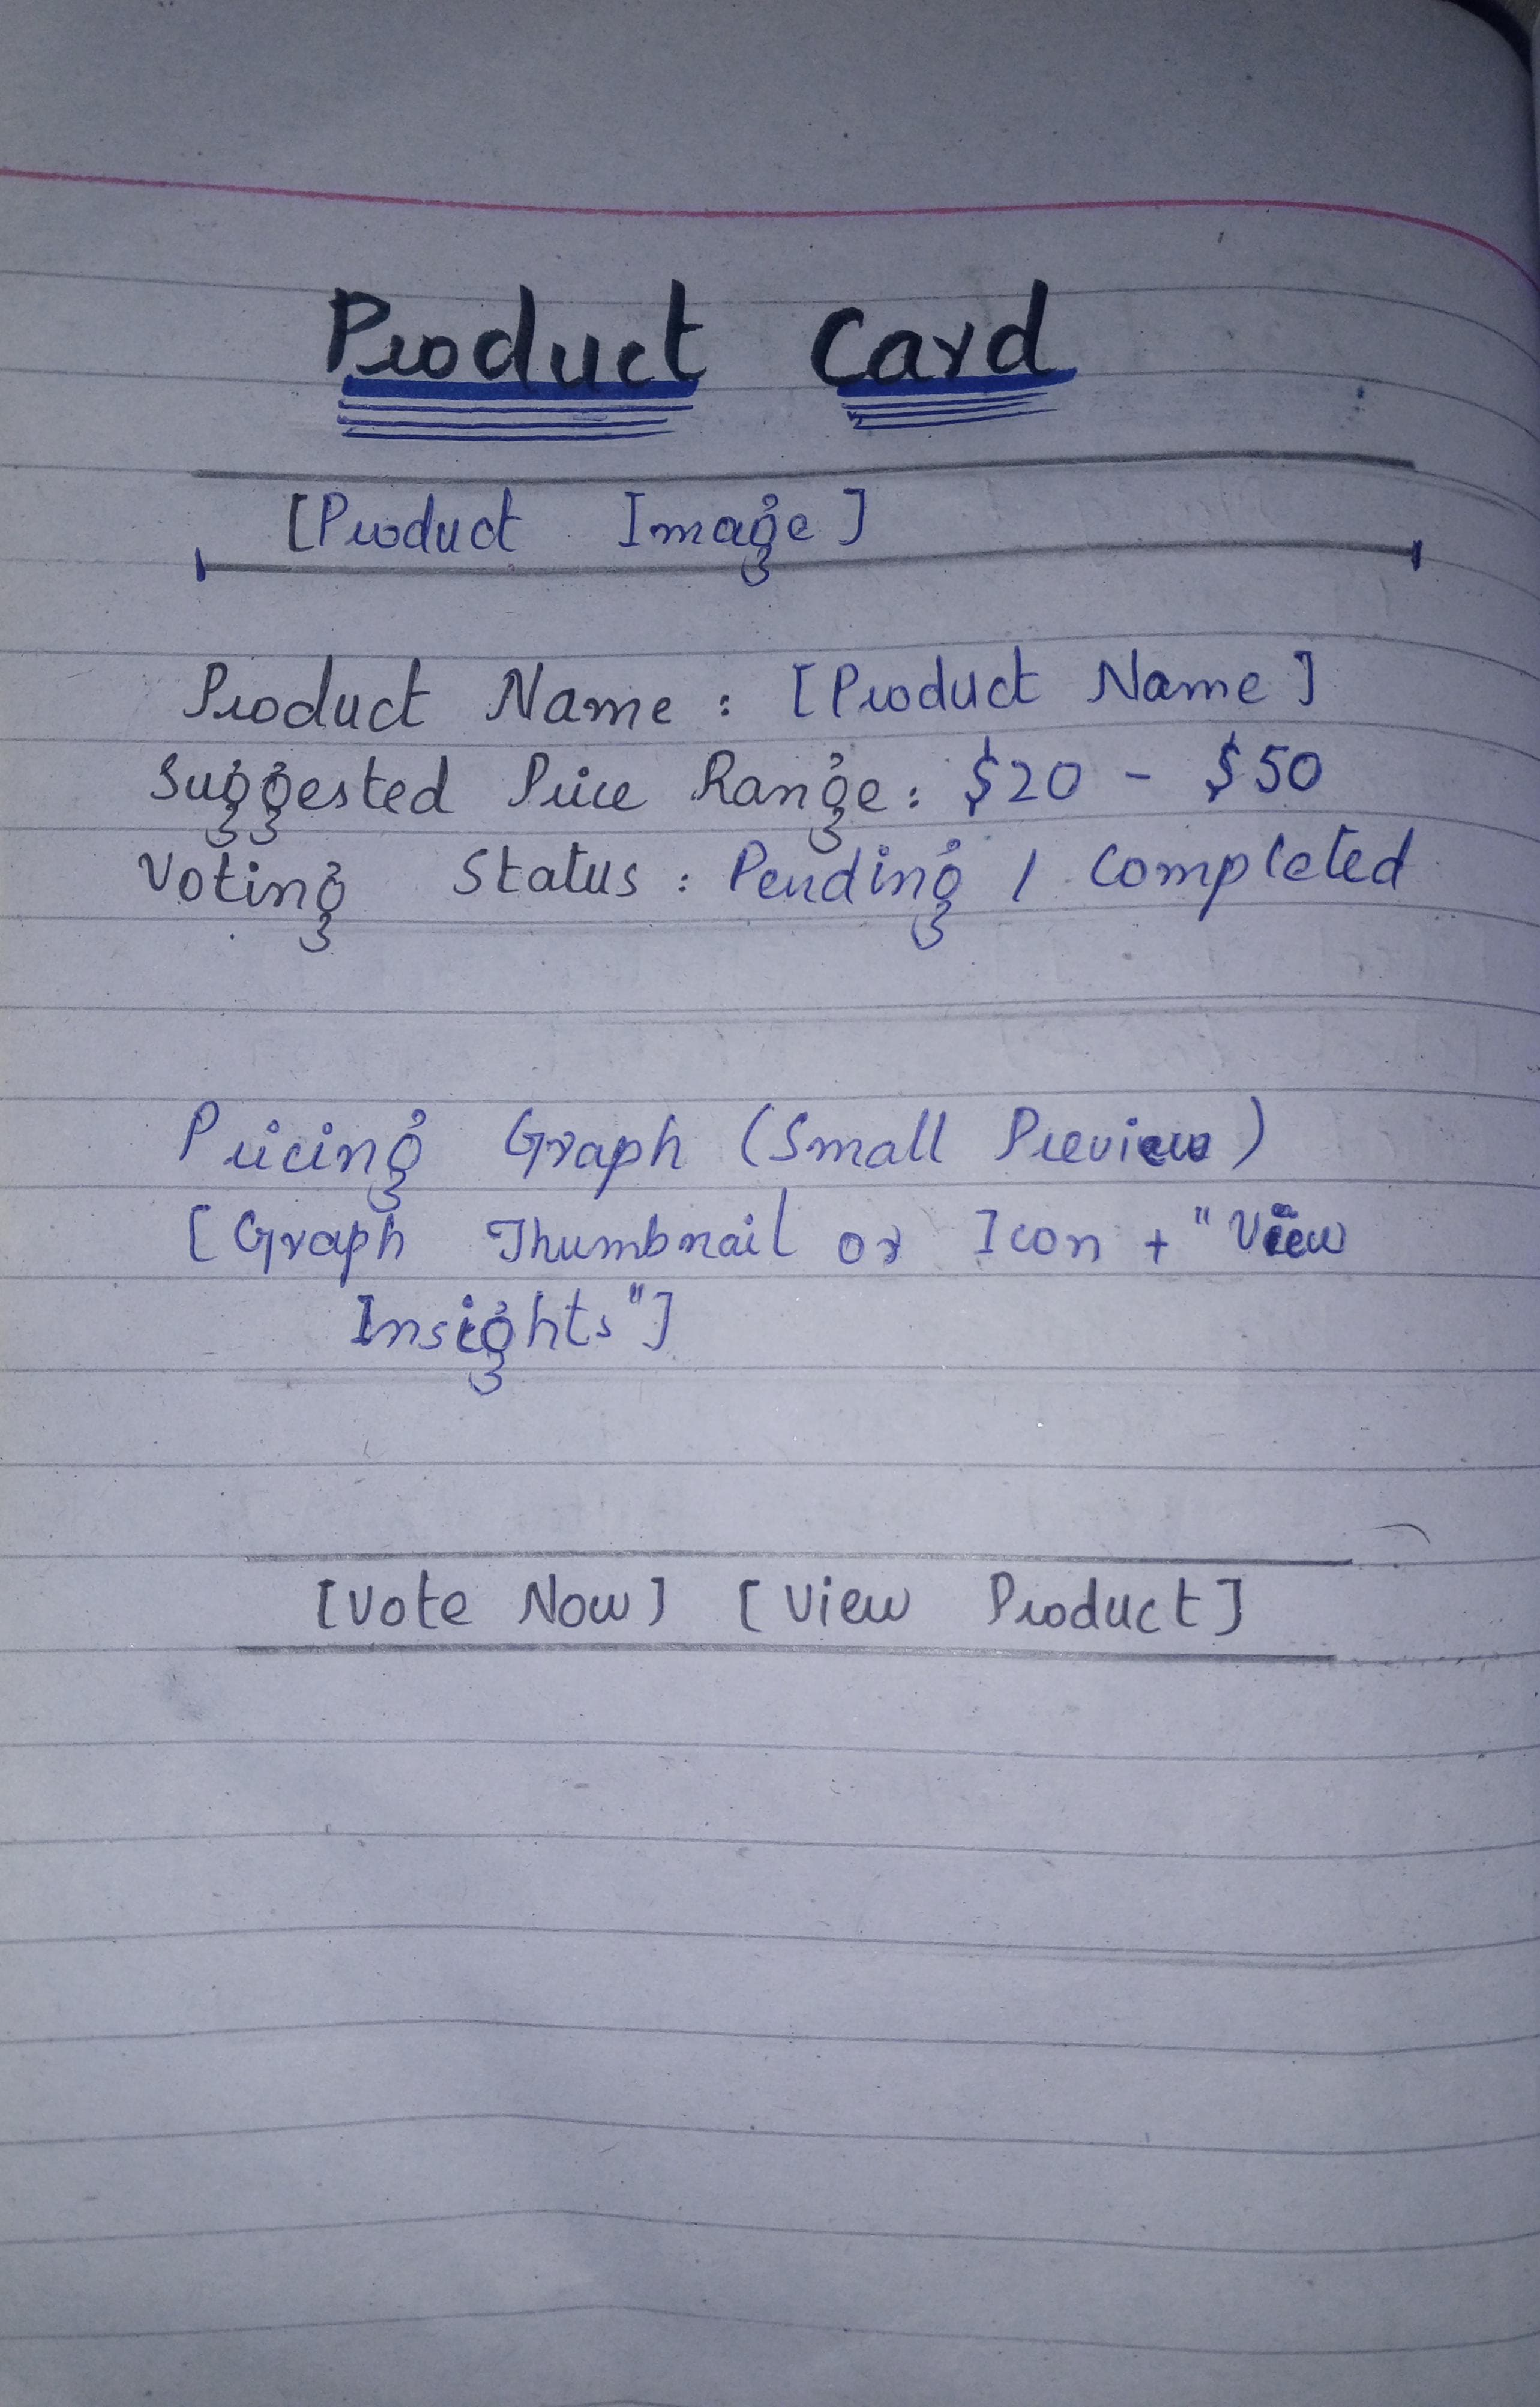 Product Card
[Product Image]
Product Name : [Product Name]
Suggested Price Range : $20 - $50
Voting Status : Pending / Completed
Pricing Graph (Small Preview)
[Graph Thumbnail or Icon + "View
Insights"]
[Vote Now] [View Product]